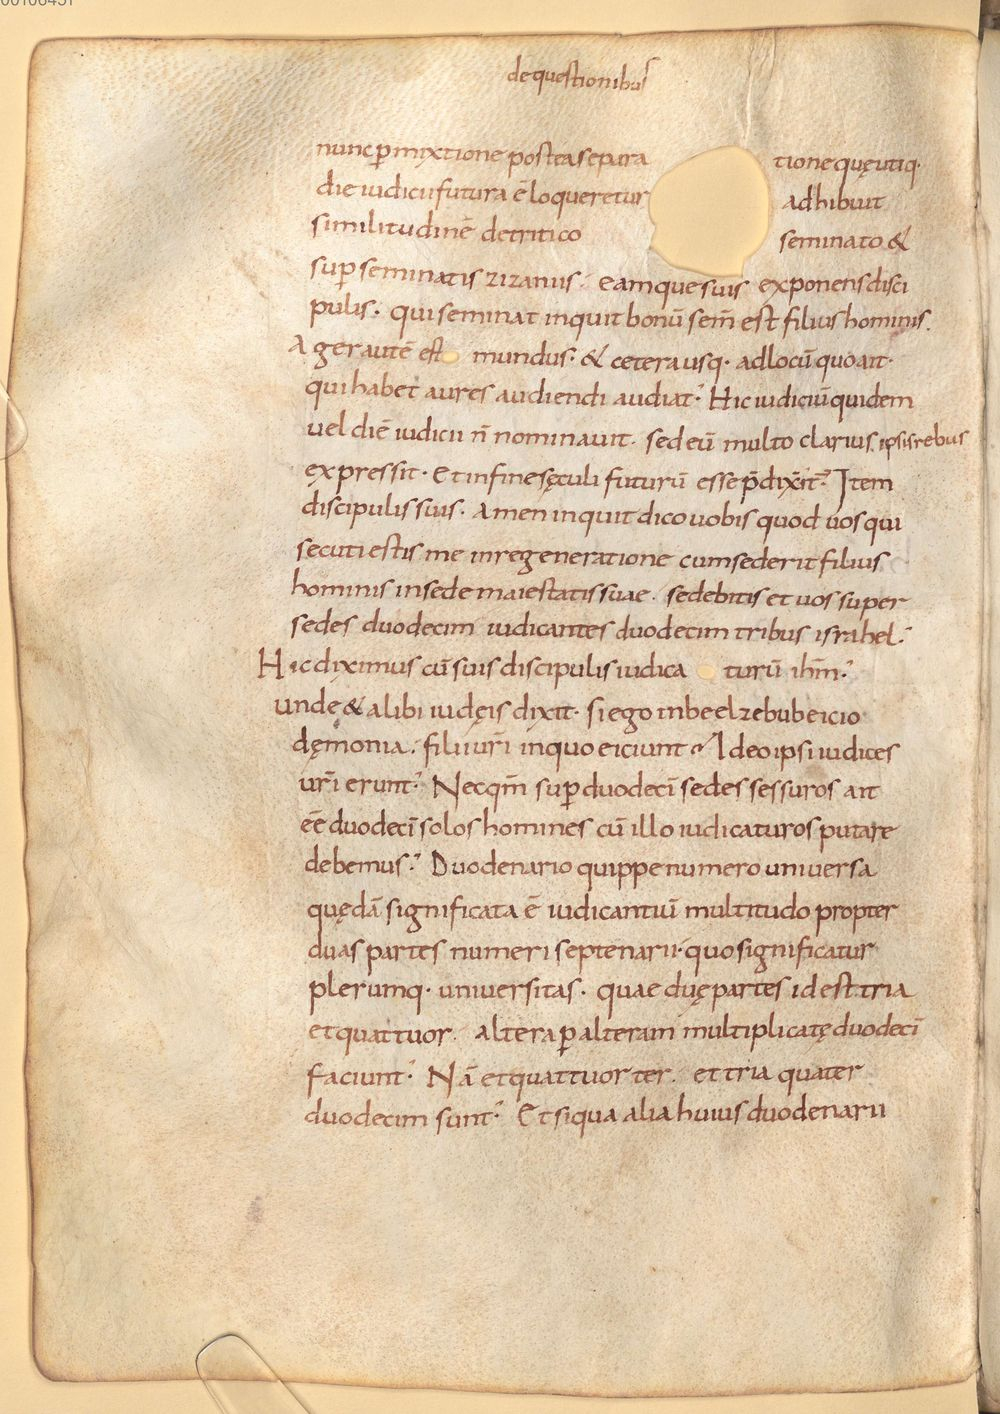 00106451
de questionibus
nunc p̄mixtione postea separa tione quę utiq·
die iudicii futura ē loqueretur adhibuit
similitudinē de tritico seminato &
sup̄ seminatis zizaniis· eamque suis exponens disci
pulis· qui seminat inquit bonū sem̄ est filius hominis.
Ager autē est mundus· & cetera usq· ad locū quo ait·
qui habet aures audiendi audiat·' Hic iudiciū quidem
uel diē iudicii n̄ nominauit· sed eū multo clarius ipsis rebus
expressit· Et in fine sęculi futurū esse p̄dixit·' Item
discipulis suis· Amen inquit dico uobis quod uos qui
secuti estis me in regeneratione cum sederit filius
hominis in sede maiestatis suae· sedebitis et uos super
sedes duodecim iudicantes duodecim tribus israhel·'
Hic diximus cū suis discipulis iudica turū ihm̄·'
unde & alibi iudęis dixit· si ego in beelzebub eicio
dęmonia· filii ur̄i in quo eiciunt? Ideo ipsi iudices
ur̄i erunt·' Nec qm̄ sup̄ duodecī sedes sessuros ait
eē duodecī solos homines cū illo iudicaturos putare
debemus·' Duodenario quippe numero uniuersa
quędā significata ē iudicantiū multitudo propter
duas partes numeri septenarii· quo significatur
plerumq· uniuersitas· quae duę partes id est tria
et quattuor· altera p̄ alteram multiplicatę duodecī
faciunt·' Nā et quattuor ter· et tria quater
duodecim sunt·' Et siqua alia huius duodenarii